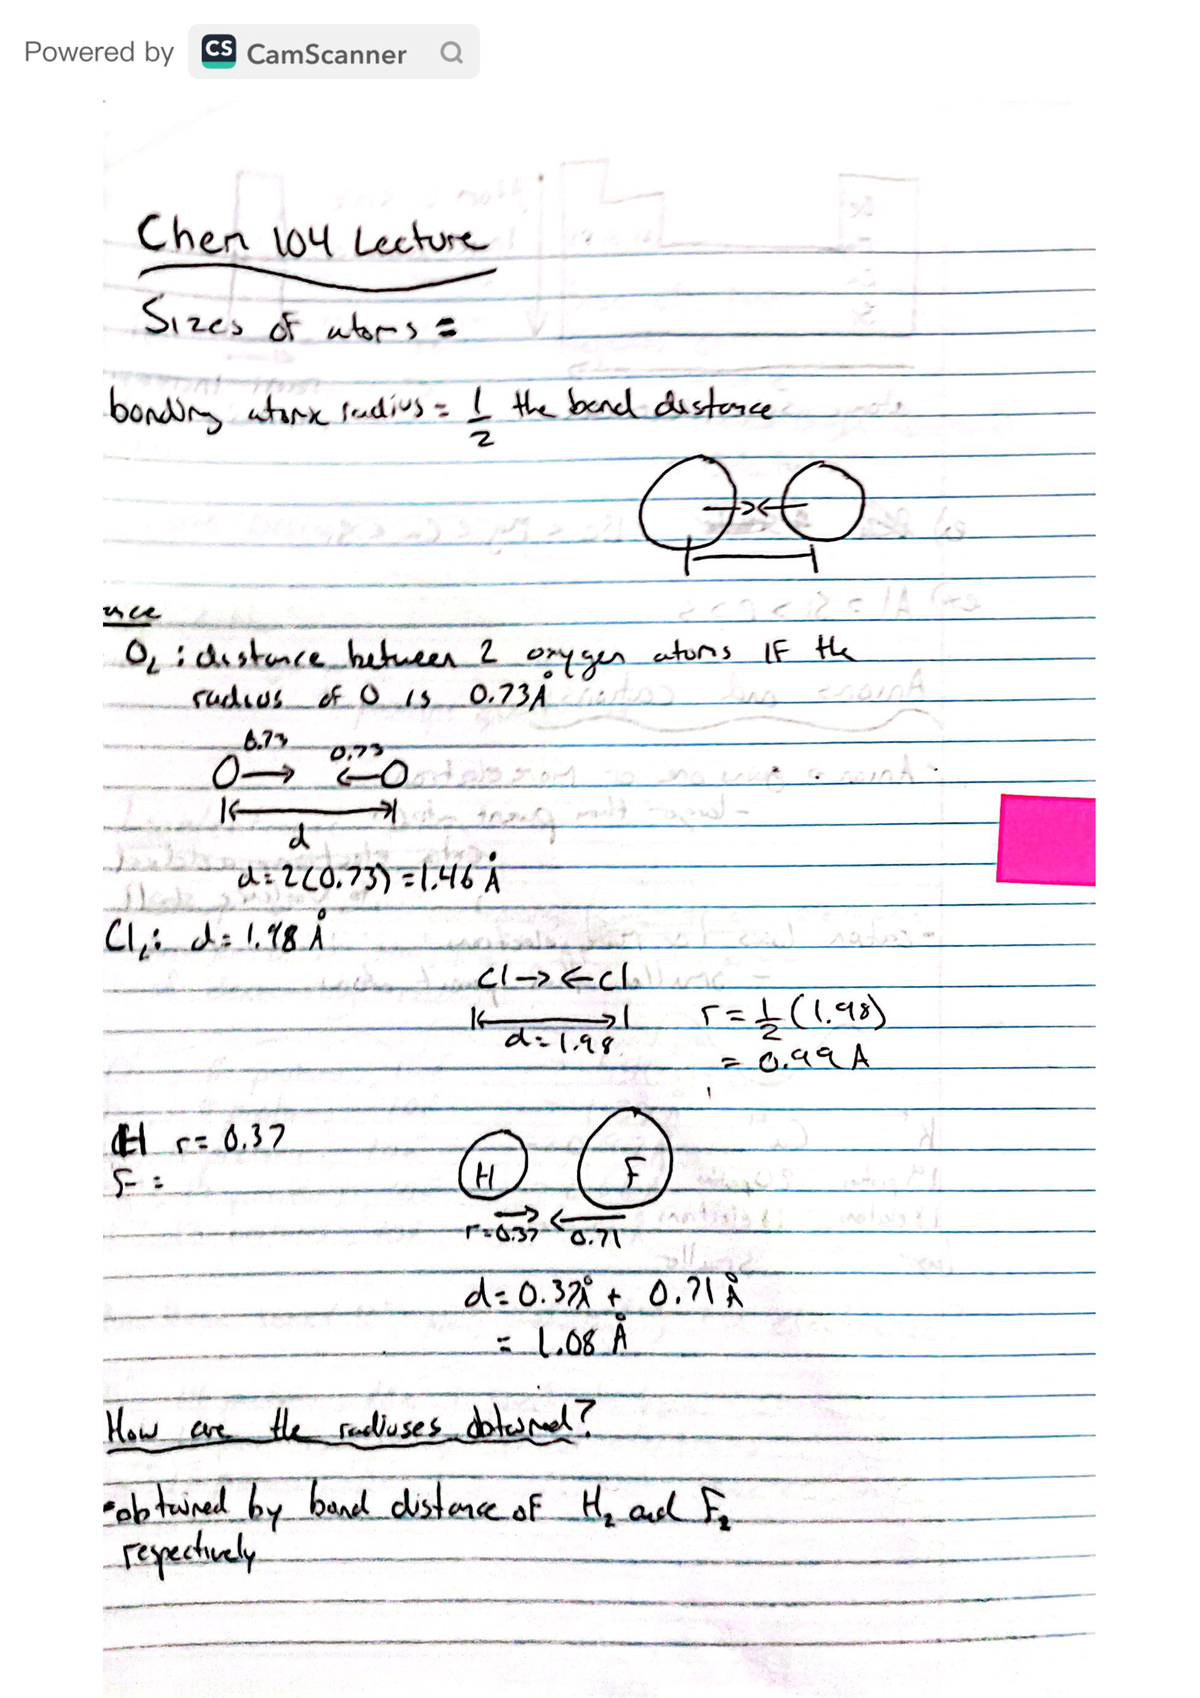 Powered by CS CamScanner
Chem 104 Lecture
Sizes of atoms =
bonding atomic radius = 1/2 the bond distance
O₂ : distance between 2 oxygen atoms IF the
radius of O is 0.73Å
0.73 0.73
O→ ←O
d
d = 2(0.73) = 1.46 Å
Cl₂: d = 1.98 Å
Cl→ ←Cl
d = 1.98
r = 1/2 (1.98)
= 0.99 A
H r = 0.37
F =
H F
r=0.37 0.71
d = 0.37Å + 0.71Å
= 1.08 Å
How are the radiuses obtained?
•obtained by bond distance of H₂ and F₂
respectively